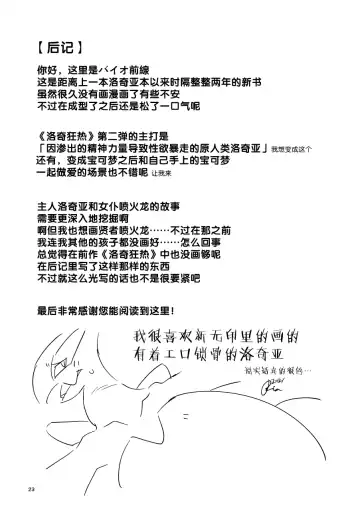 【后记】
你好，这里是バイオ前線
这是距离上一本洛奇亚本以来时隔整整两年的新书
虽然很久没有画漫画了有些不安
不过在成型了之后还是松了一口气呢
《洛奇狂热》第二弹的主打是
「因渗出的精神力量导致性欲暴走的原人类洛奇亚」我想变成这个
还有，变成宝可梦之后和自己手上的宝可梦
一起做爱的场景也不错呢 让我来
主人洛奇亚和女仆喷火龙的故事
需要更深入地挖掘啊
啊但我也想画贤者喷火龙……不过在那之前
我连我其他的孩子都没画好……怎么回事
总觉得在前作《洛奇狂热》中也没画够呢
在后记里写了这样那样的东西
不过就这么光写的话也不是很要紧吧
最后非常感谢您能阅读到这里！
我很喜欢
的画的
有着工口
的洛奇亚
23